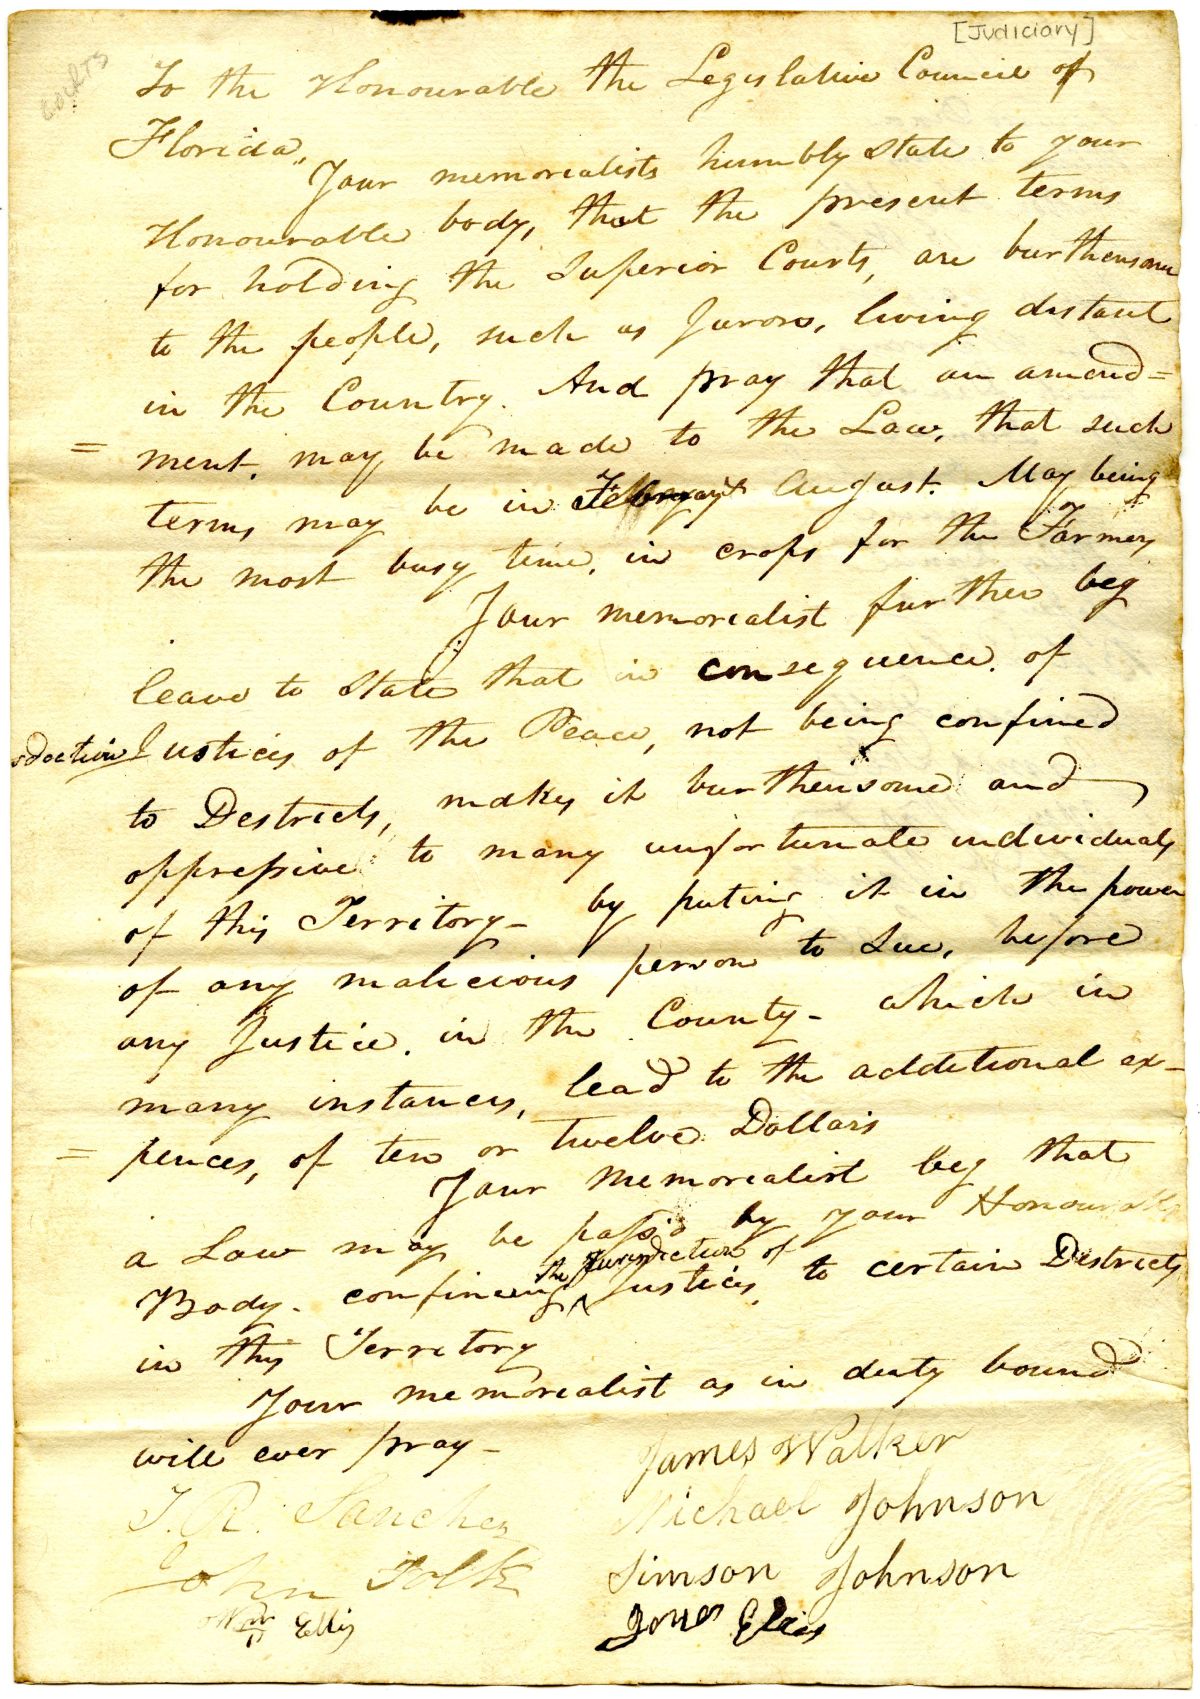 [Judiciary]
Courts
To the Honourable the Legislative Council of
Florida,,
Your memorialists humbly state to your
Honourable body, that the present terms
for holding the Superior Courts, are burthensome
to the people, such as Jurors, living distant
in the Country. And pray that an amend=
= ment. may be made to the Law, that such
terms may be in August. May being
the most busy time, in crops for the Farmers
Your memorialist further beg
leave to state that in consequence of
Justices of the Peace, not being confined
to Destricts, makes it burthensome and
oppressive to many unfortunate individuals
of this Territory - by puting it in the power
of any malicious person to sue, before
any Justice. in the County - which in
many instances, lead to the additional ex-
= pences, of ten or twelve Dollars
Your memorialist beg that
a Law may be pass'd by your Honourable
Body - confineing ^ the Jurisdiction of Justices, to certain Destricts
in this Territory
Your memorialist as in duty bound
will ever pray -
James Walker
J. R. Sanchez
Michael Johnson
John Folk
Simson Johnson
Ellis
Ellis